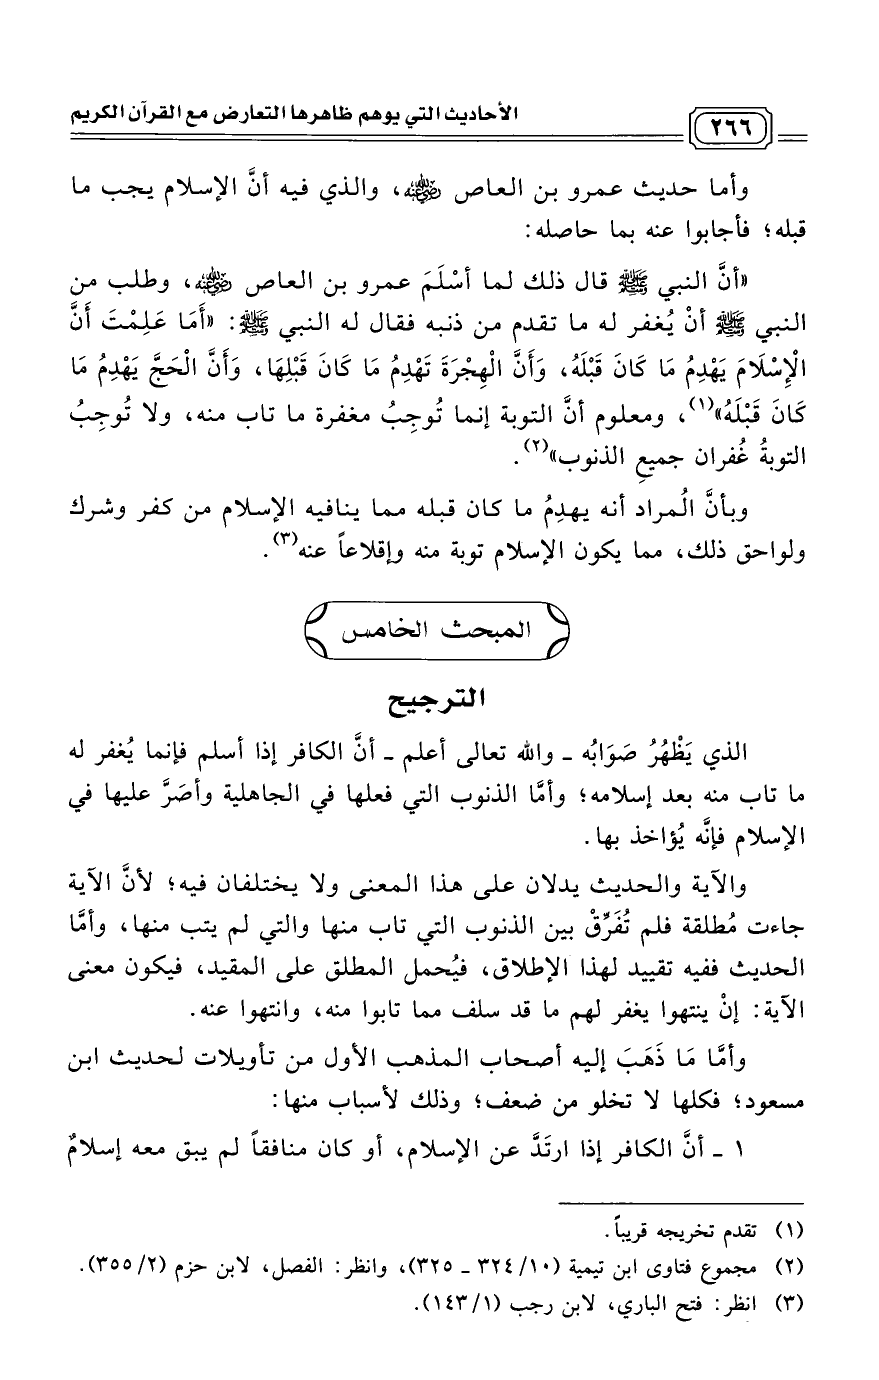 ٢٦٦
الأحاديث التي يوهم ظاهرها التعارض مع القرآن الكريم
وأما حديث عمرو بن العاص رضي الله عنه، والذي فيه أنَّ الإسلام يجب ما
قبله؛ فأجابوا عنه بما حاصله:
«أنَّ النبي ﷺ قال ذلك لما أسْلَمَ عمرو بن العاص رضي الله عنه، وطلب من
النبي ﷺ أنْ يُغفر له ما تقدم من ذنبه فقال له النبي ﷺ: «أَمَا عَلِمْتَ أَنَّ
الْإِسْلَامَ يَهْدِمُ مَا كَانَ قَبْلَهُ، وَأَنَّ الْهِجْرَةَ تَهْدِمُ مَا كَانَ قَبْلِهَا، وَأَنَّ الْحَجَّ يَهْدِمُ مَا
كَانَ قَبْلَهُ»(١)، ومعلوم أنَّ التوبة إنما تُوجِبُ مغفرة ما تاب منه، ولا تُوجِبُ
التوبةُ غُفران جميعِ الذنوب»(٢).
وبأنَّ الُمراد أنه يهدِمُ ما كان قبله مما ينافيه الإسلام من كفر وشرك
ولواحق ذلك، مما يكون الإسلام توبة منه وإقلاعاً عنه(٣).
المبحث الخامس
الترجيح
الذي يَظْهُرُ صَوَابُه ـ والله تعالى أعلم ـ أنَّ الكافر إذا أسلم فإنما يُغفر له
ما تاب منه بعد إسلامه؛ وأمَّا الذنوب التي فعلها في الجاهلية وأصَرَّ عليها في
الإسلام فإنَّه يُؤاخذ بها.
والآية والحديث يدلان على هذا المعنى ولا يختلفان فيه؛ لأنَّ الآية
جاءت مُطلقة فلم تُفَرِّقْ بين الذنوب التي تاب منها والتي لم يتب منها، وأمَّا
الحديث ففيه تقييد لهذا الإطلاق، فيُحمل المطلق على المقيد، فيكون معنى
الآية: إنْ ينتهوا يغفر لهم ما قد سلف مما تابوا منه، وانتهوا عنه.
وأمَّا مَا ذَهَبَ إليه أصحاب المذهب الأول من تأويلات لحديث ابن
مسعود؛ فكلها لا تخلو من ضعف؛ وذلك لأسباب منها:
١ ـ أنَّ الكافر إذا ارتَدَّ عن الإسلام، أو كان منافقاً لم يبق معه إسلامٌ
(١) تقدم تخريجه قريباً.
(٢) مجموع فتاوى ابن تيمية (١٠/ ٣٢٤ ـ ٣٢٥)، وانظر: الفصل، لابن حزم (٢/ ٣٥٥).
(٣) انظر: فتح الباري، لابن رجب (١/ ١٤٣).